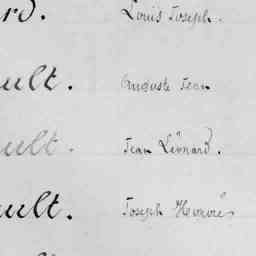 rd. Louis Joseph.
ult. Auguste Jean
ult. Jean Léonard.
ult. Joseph Honoré